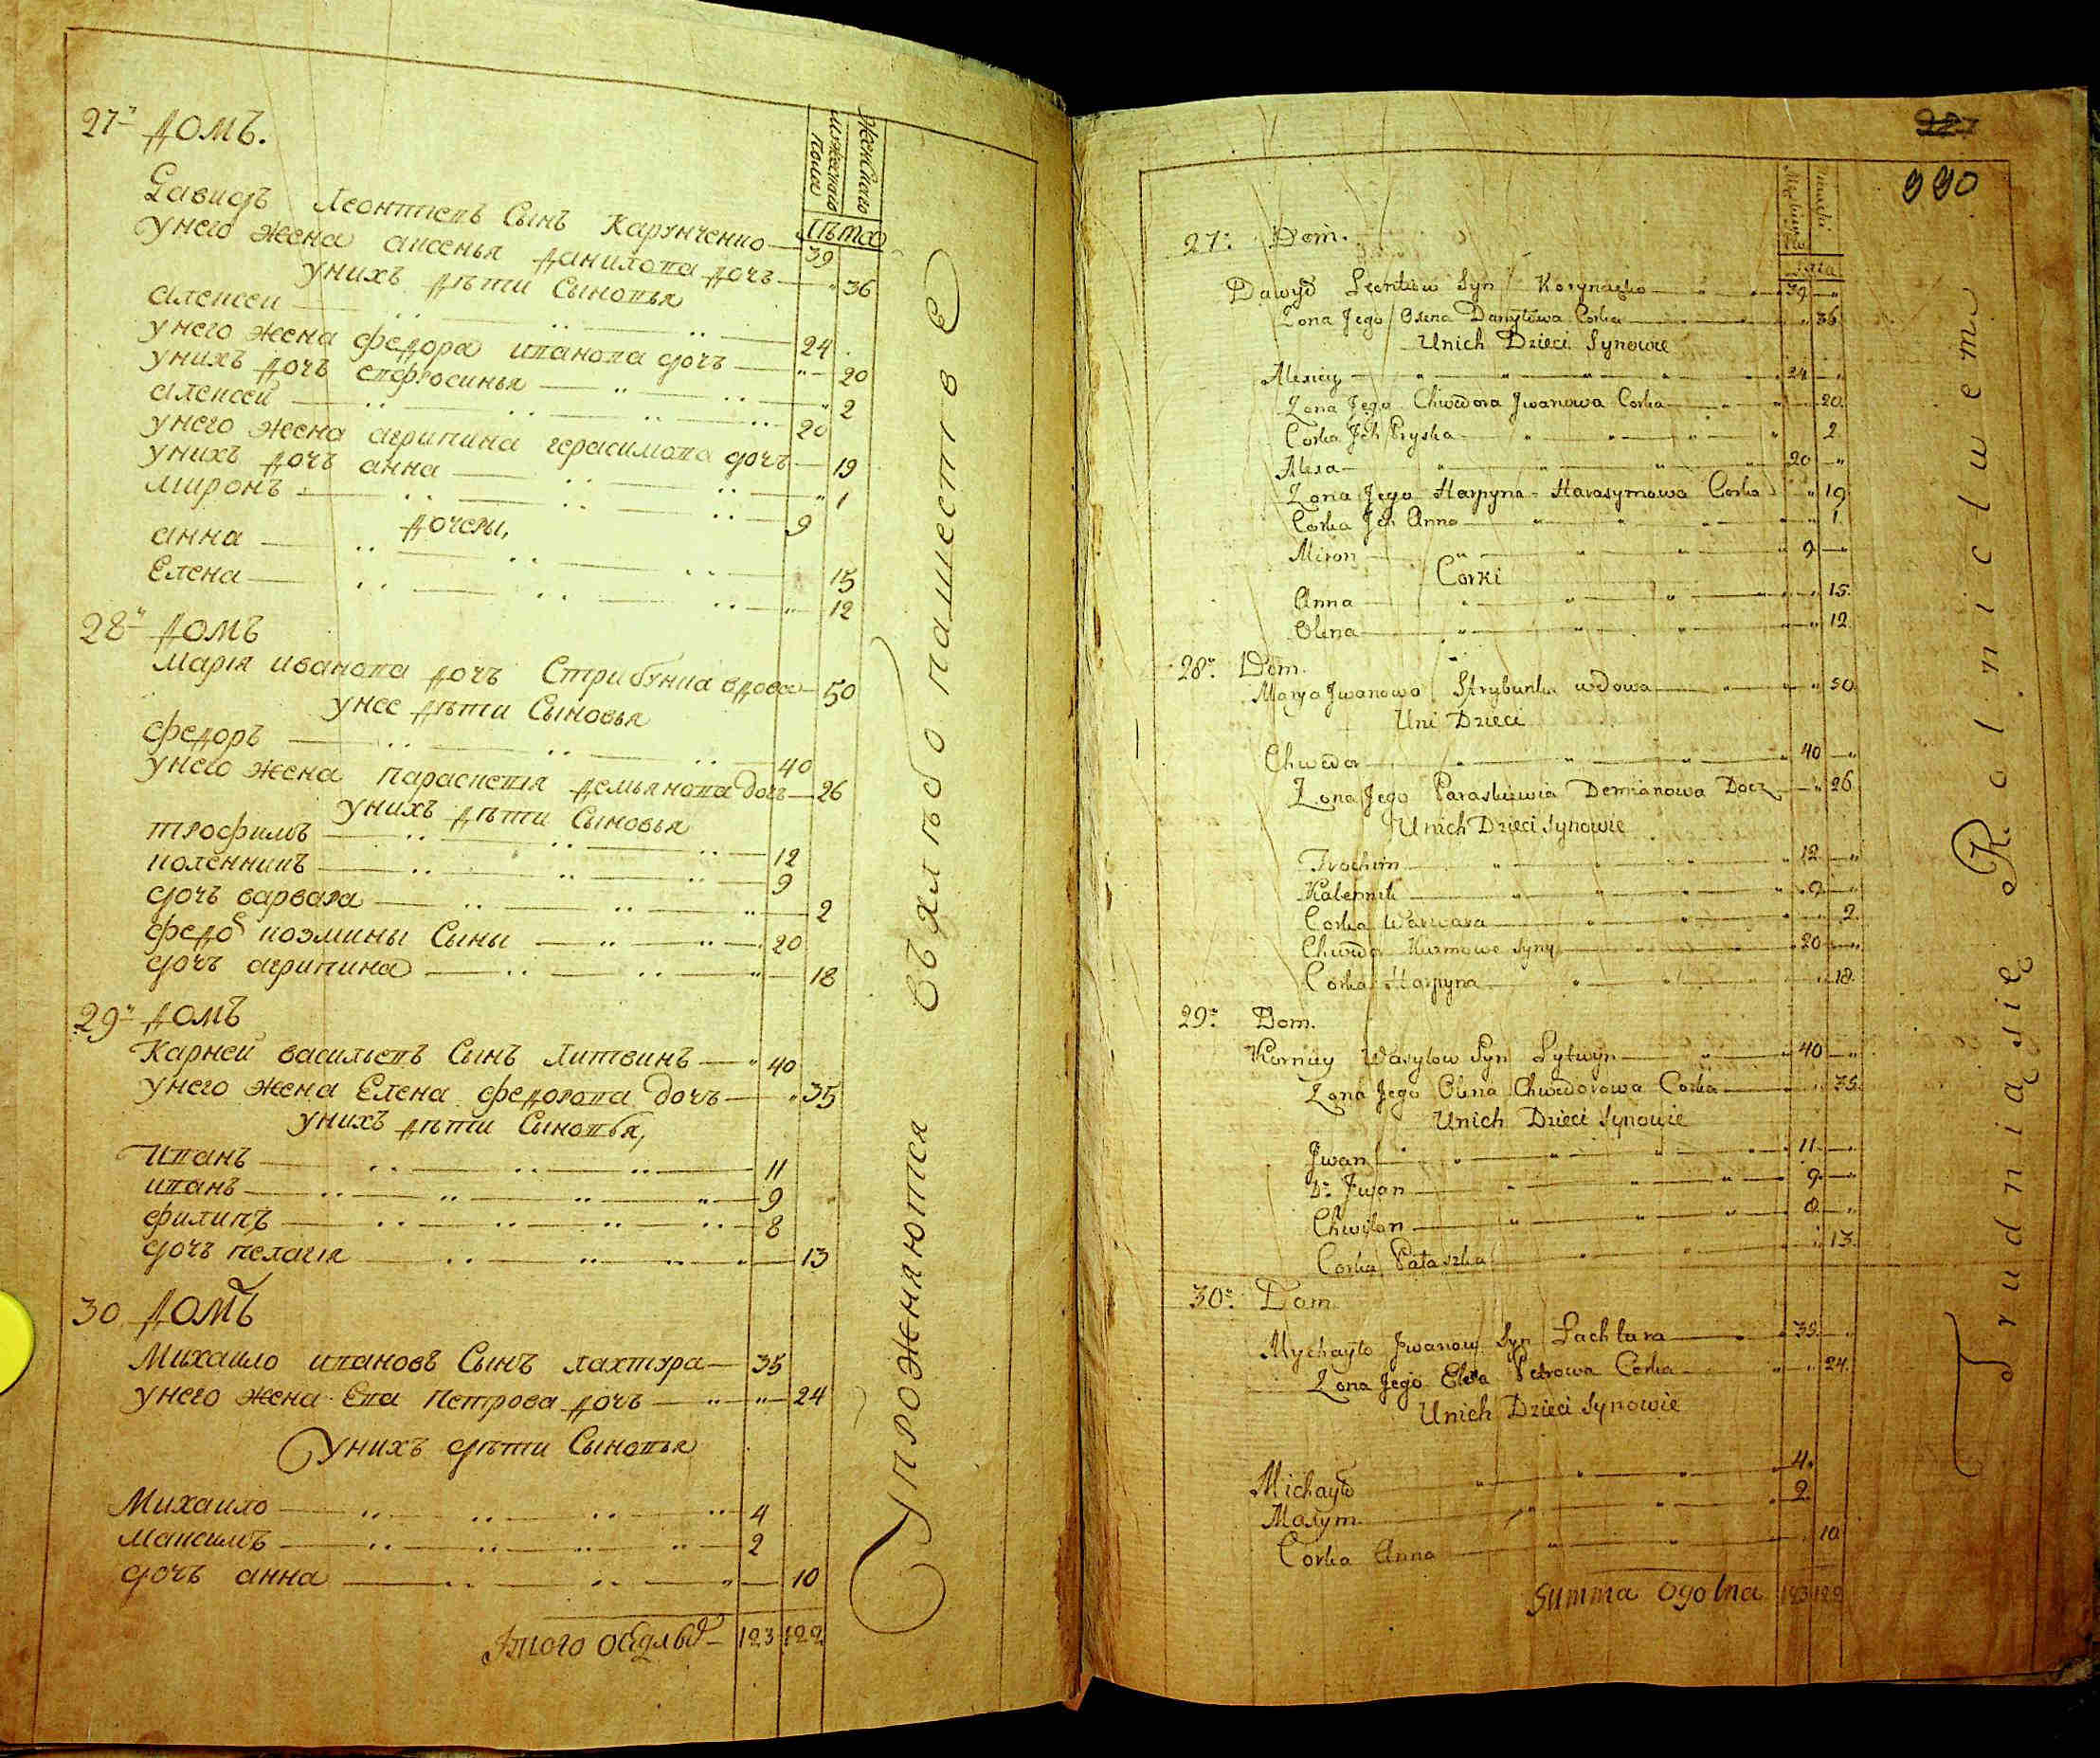 27й домъ.
мужескаго пола
женскаго
Лѣта
Давидъ Леонтиевъ Сынъ Карунченко 39
унего жена аксенья данилова дочъ 36
унихъ дѣти Сыновья
алексеи 24
унего жена федора иванова дочъ 20
унихъ дочъ евфросинья 2
алексей 20
унего жена агрипина герасимова дочъ 19
унихъ дочъ анна 1
миронъ 9
дочеры,
анна 15
Елена 12
28й домъ
Марія иванова дочъ Стрибунка вдова 50
унее дѣти Сыновья
федоръ 40
унего жена параскевія демьянова дочъ 26
унихъ дѣти Сыновья
трофимъ 12
каленникъ 9
дочъ варвара 2
козмины Сыны 20
дочъ агрипина 18
29й домъ
Карней васильевъ Сынъ Литвинъ 40
унего жена Елена федорова дочъ 35
унихъ дѣти Сыновья,
Иванъ 11
иванъ 9
филипъ 8
дочъ пелагія 13
30 домъ
Михаило ивановъ Сынъ лахтура 35
унего жена Ева петрова дочъ 24
унихъ дѣти Сыновья
Михаило 4
максимъ 2
дочъ анна 10
Итого 123 122
Упрожняются въ хлѣбопашествѣ
990
27: Dom.
Lata
Dawyd Leontiow Syn Korynaczko 39
Zona Jego Oxena Danyłowa Corka 36
Unich Dzieci Synowie
Alexiey 24
Zona Jego Chwedora Jwanowa Corka 20
Corka Jch Pryska 2
Alexa 20
Zona Jego Harpyna Harasymowa Corka 19
Corka Jch Anna 1
Miron 9
Corki
Anna 15
Olena 12
28: Dom.
Marya Jwanowa Strybunka wdowa 50
Uni Dzieci
Chwedor 40
Zona Jego Paraskiewia Demianowa Docz 26
Unich Dzieci Synowie
Trochim 12
Kalennik 9
Corka Warwara 2
Chwedor Kuzmowe Syny 20
Corka Harpyna 18
29: Dom.
Korniey Wasylow Syn Lytwyn 40
Zona Jego Olena Chwedorowa Corka 35
Unich Dzieci Synowie
Jwan 11
Dr. Jwan 9
Chwilon 8
Corka Pałaszka 13
30: Dom
Mychayło Jwanow Syn Lachtura 35
Zona Jego Ewa Petrowa Corka 24
Unich Dzieci Synowie
Michayło 4
Maxym 2
Corka Anna 10
Summa ogolna 123 122
Trudnią się Rolnictwem